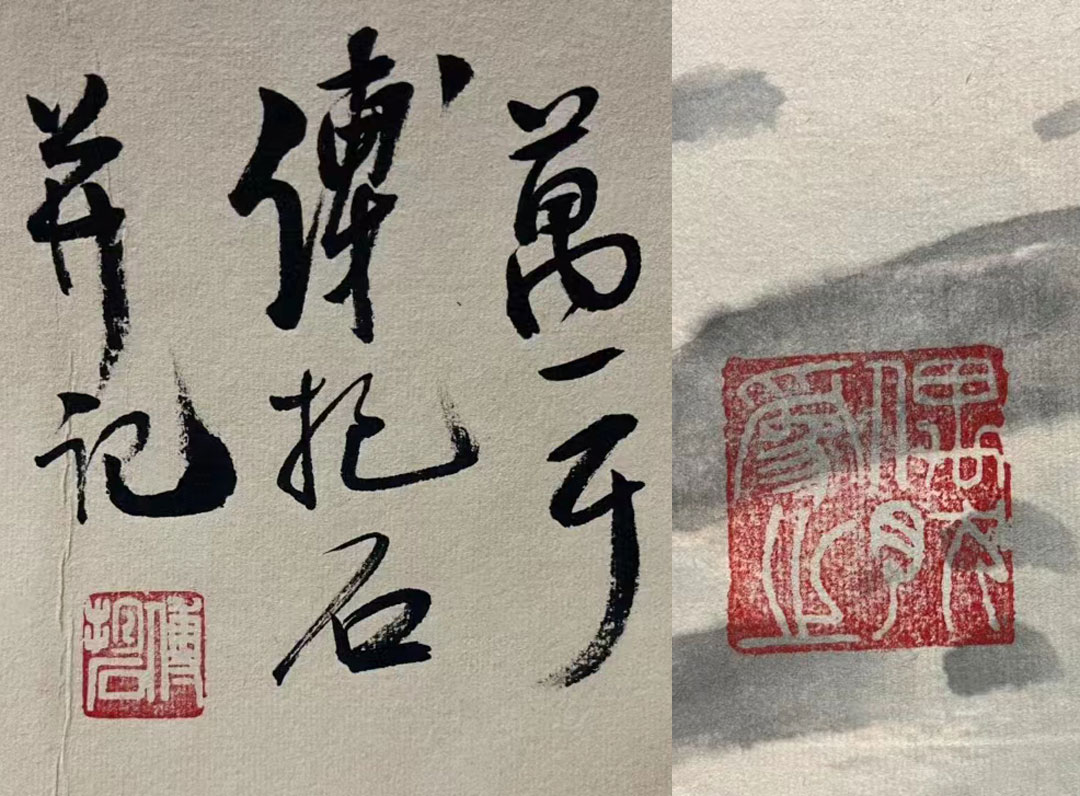 萬一耳
傅抱石
并記
傅抱石